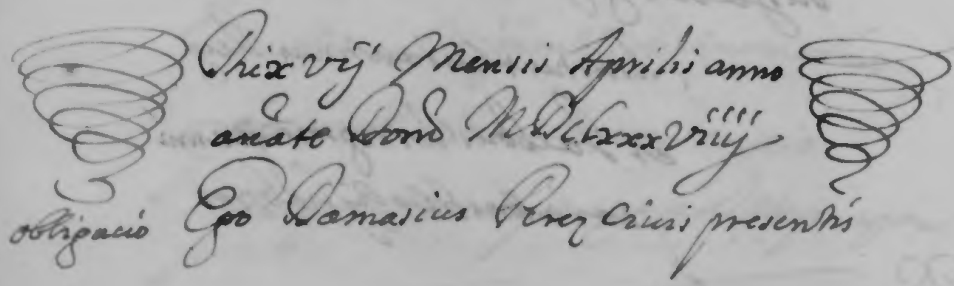 Die xvij Mensis Aprilis anno
a natē Domī MDclxxxviiij
obligacio Ego Damasius Perez Civis presentis